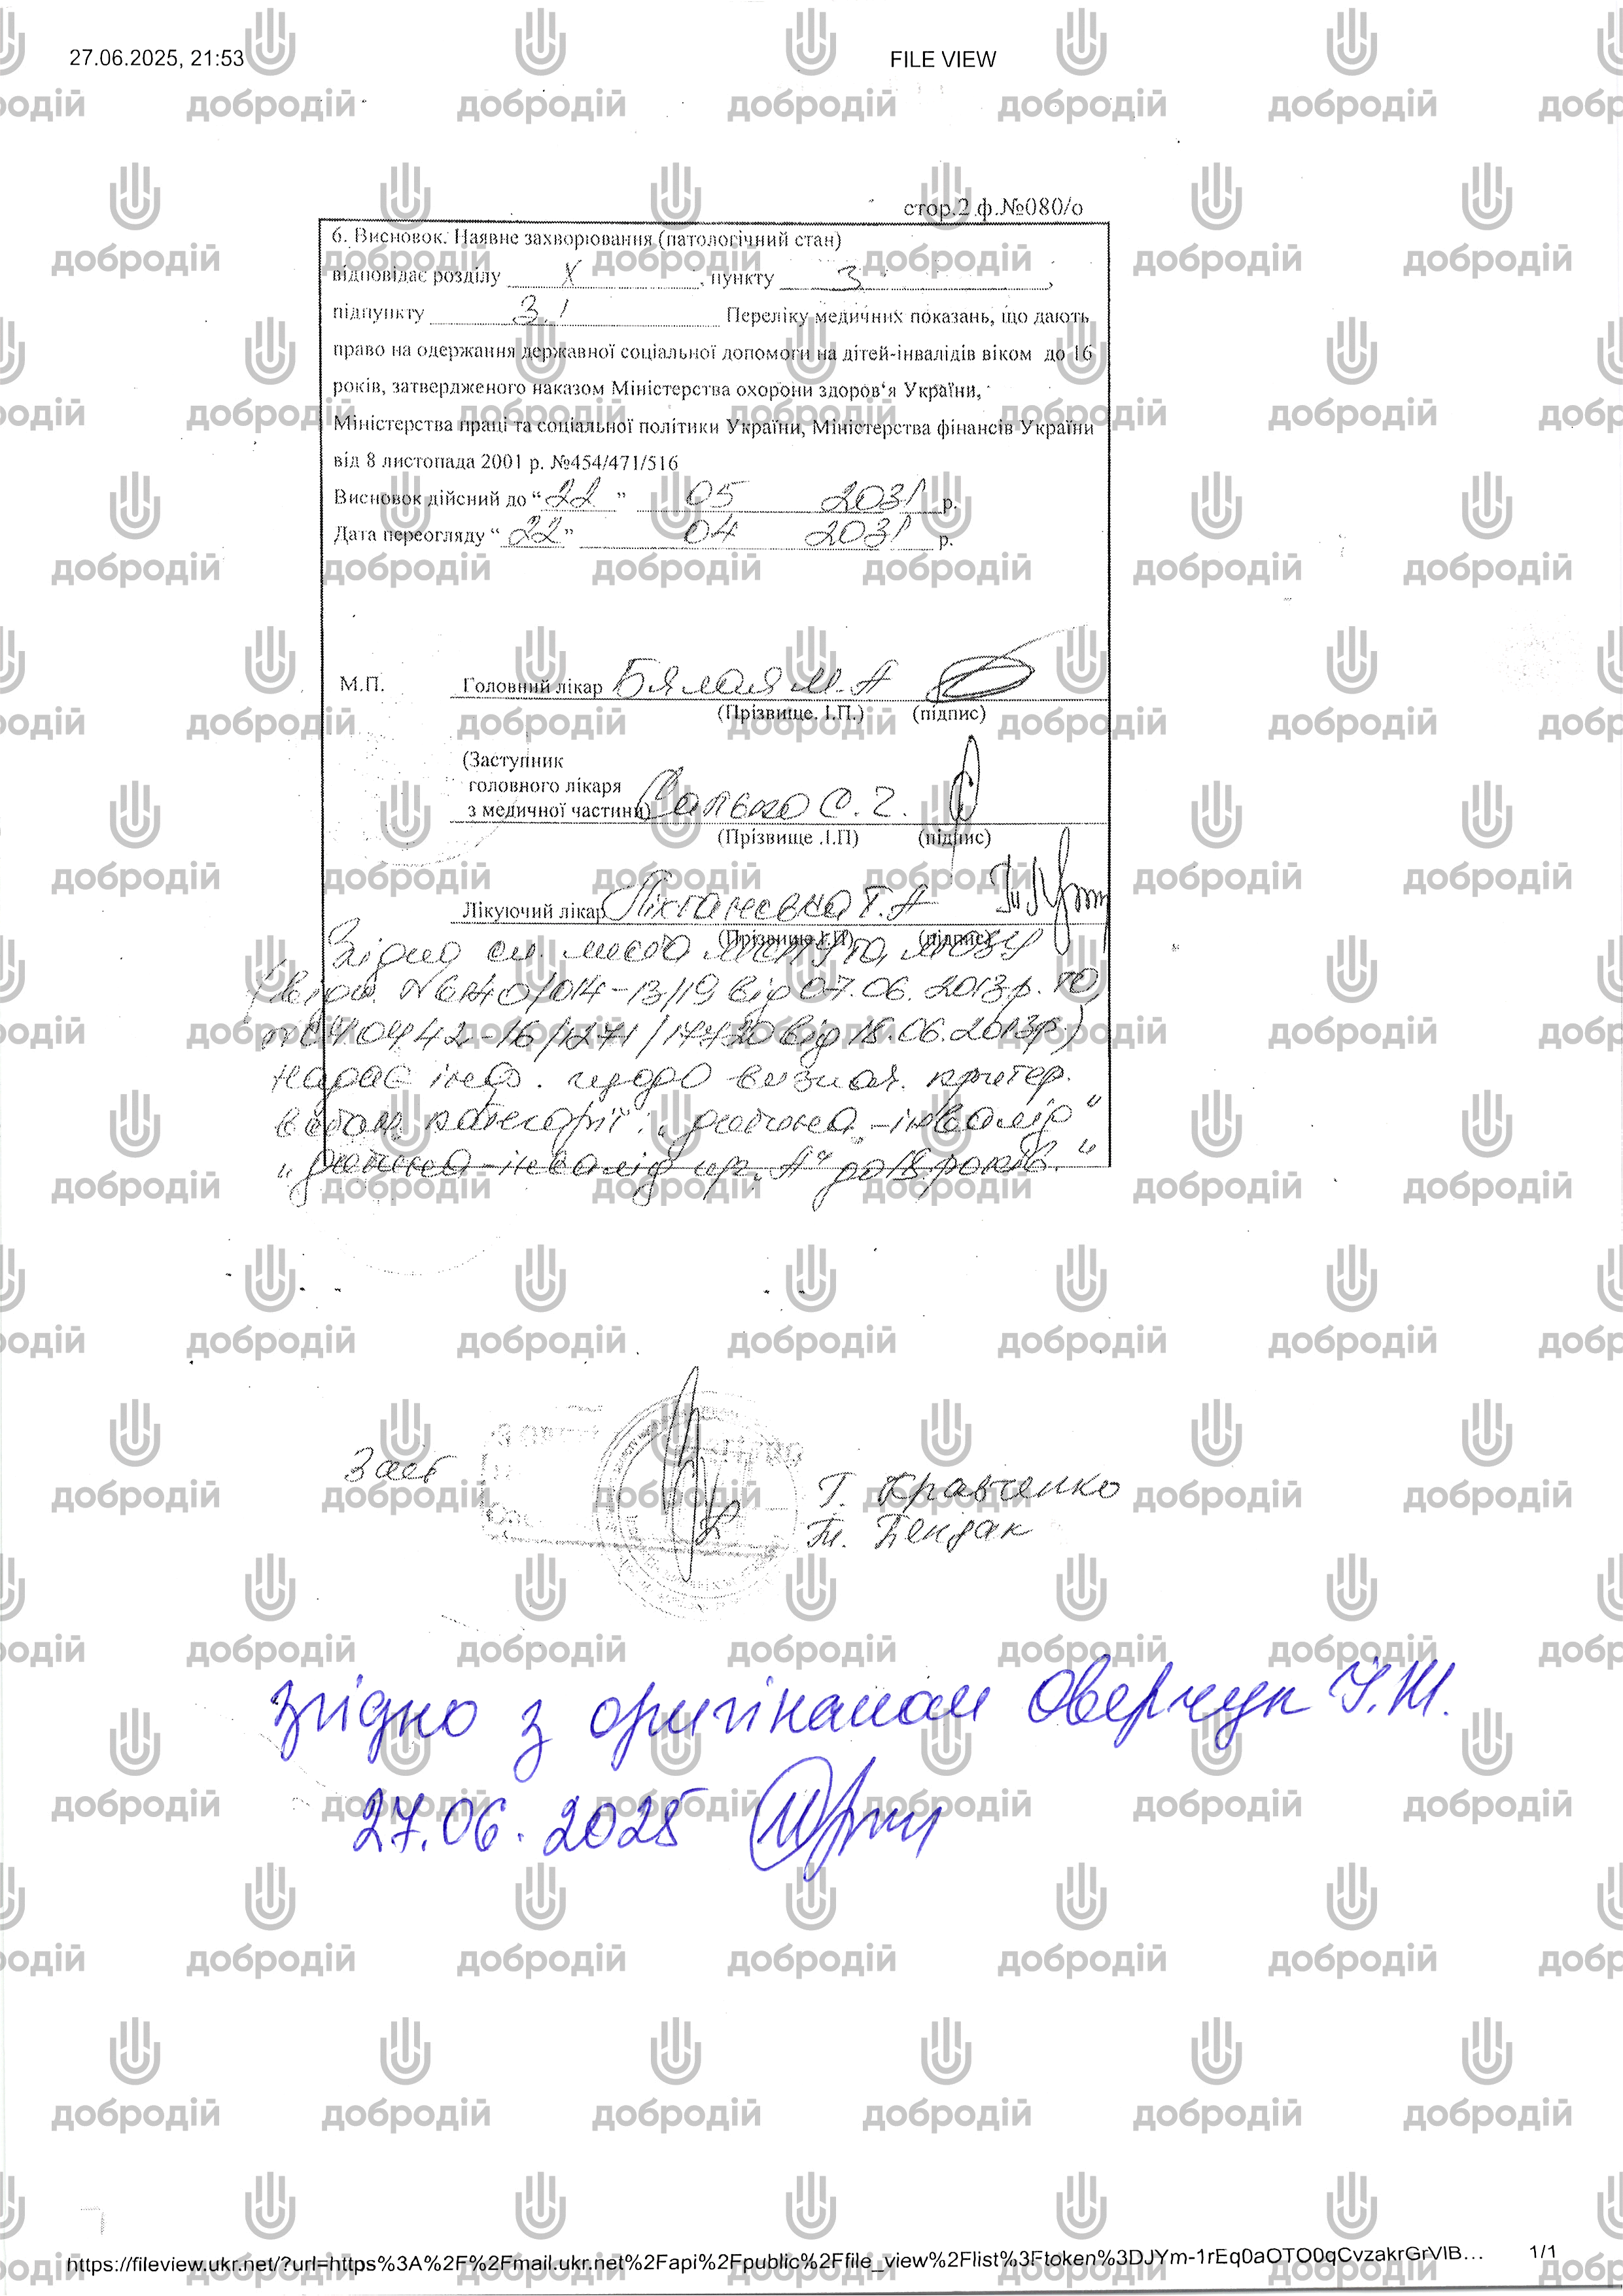 27.06.2025, 21:53
FILE VIEW
стор.2 ф.№080/о
6. Висновок. Наявне захворювання (патологічний стан)
відповідає розділу X , пункту 3 ,
підпункту 3.1 Переліку медичних показань, що дають
право на одержання державної соціальної допомоги на дітей-інвалідів віком до 16
років, затвердженого наказом Міністерства охорони здоров'я України,
Міністерства праці та соціальної політики України, Міністерства фінансів України
від 8 листопада 2001 р. №454/471/516
Висновок дійсний до “ 22 ” 05 2031 р.
Дата переогляду “ 22 ” 04 2031 р.
М.П. Головний лікар Бялая М.А
(Прізвище. І.П.) (підпис)
(Заступник
головного лікаря
з медичної частини) Салько С. Г.
(Прізвище .І.П) (підпис)
Лікуючий лікар Т.А
(Прізвище І.П) (підпис)
Згідно листа
від 07.06.2013р.
від 18.06.2013р)
надає інф. щодо визнач. критер.
встан. категорії: „дитина-інвалід“
„дитина-інвалід пр. „А“ до 18 років.“
Заст
Т. Кравченко
Т. Бендак
Згідно з оригіналом Оверчук І.М.
27.06.2025
добродій
https://fileview.ukr.net/?url=https%3A%2F%2Fmail.ukr.net%2Fapi%2Fpublic%2Ffile_view%2Flist%3Ftoken%3DJYm-1rEq0aOTO0qCvzakrGrVIB... 1/1